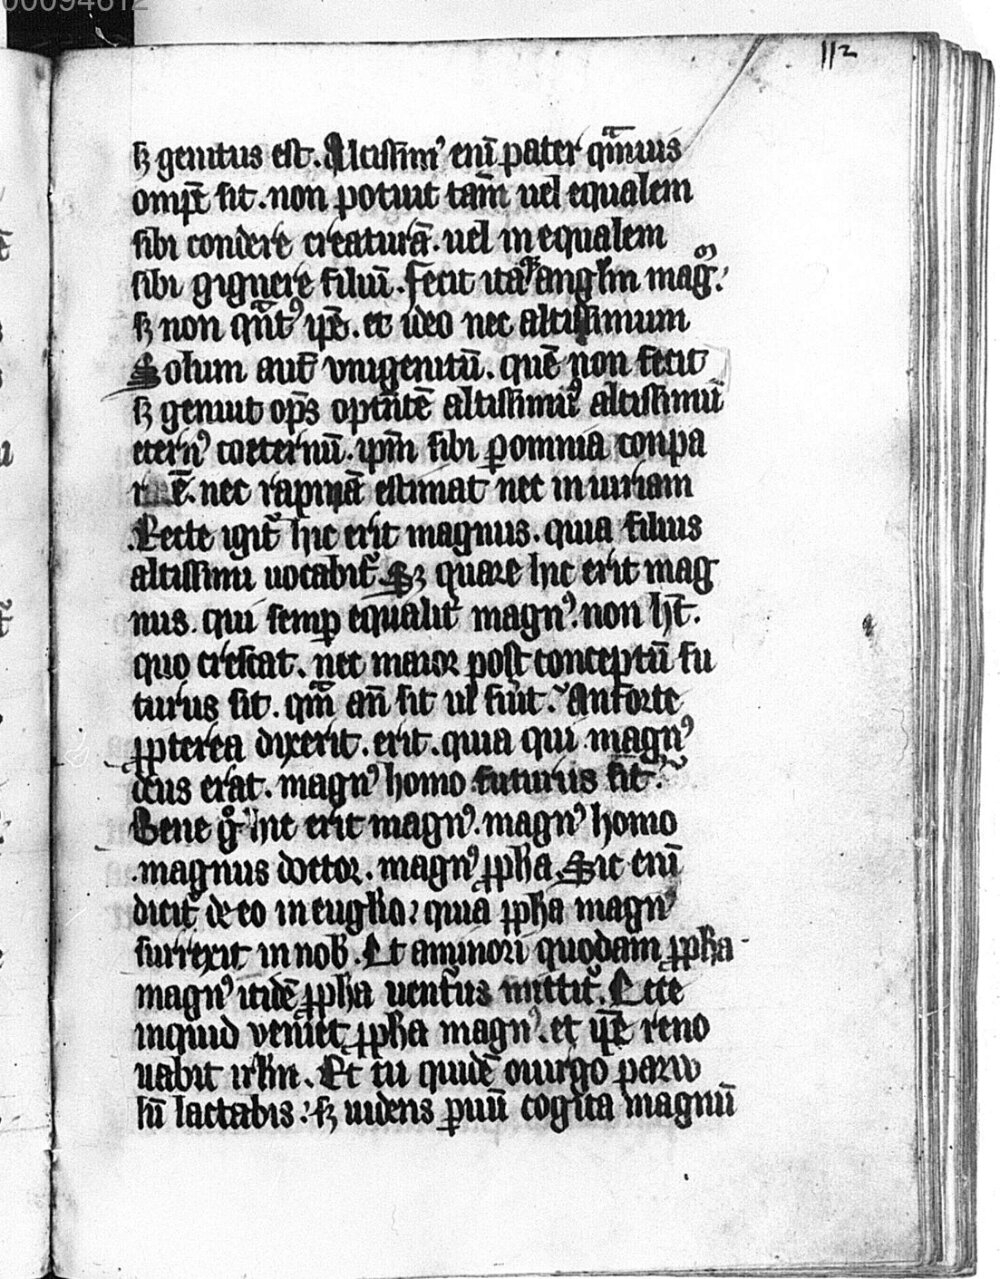 00094612
112
sꝫ genitus est. Altissimꝰ eni̅ pater qᷓmuis
omp̅s sit. non potuit tam̅ uel equalem
sibi condere creatura̅. uel inequalem
sibi gignere filiu̅. Fecit itaqꝫ angl̅m mag̊.
sꝫ non qᷓntꝰ ip̅e. et ideo nec altissimum
Solum aut̅ vnigenitu̅. que̅ non fecit
sꝫ genuit op̅s opt̅nte̅ altissimu̅ altissimu̅
eternꝰ coeternu̅. ip̅m sibi ꝑomnia conpa
e̅. nec rapina̅ estimat nec iniuriam
Recte igit᷑ hic erit magnus. quia filius
altissimi uocabit᷑. Sꝫ quare hic erit mag
nus. qui semꝑ equalit᷑ magnꝰ. non h̅t.
quo crescat. nec maior post conceptu̅ fu
turus sit. qᷓm an̅ sit ul̅ fuit. An forte
ꝓpterea dixerit. erit. quia qui magnꝰ
deus erat. magnꝰ homo futurus sit.
Bene g̊ hic erit magnꝰ. magnꝰ homo
magnus doctor. magnꝰ ꝓpha. Sic eni̅
dicit᷑ de eo in euglio. quia ꝓpha magnꝰ
surrexit in nob̅. Et aminori quodam ꝓpha
magnꝰ itide̅ ꝓpha uent᷑us mittit᷑. Ecce
inquid veniet ꝓpha magnꝰ. et ip̅e reno
uabit irl̅m. Et tu quide̅ ouirgo paruu
lu̅ lactabis. sꝫ uidens ꝑuu̅ cogita magnu̅